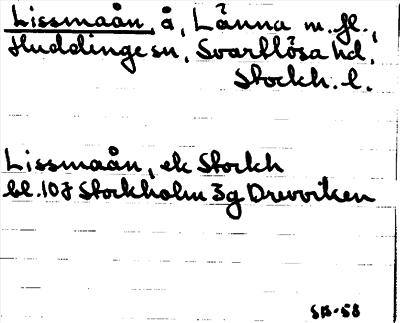 Lissmaån, å, Länna m.fl.,
Huddinge sn, Svartlösa hd,
Stockh. l.
Lissmaån, ek Stockh
bl. 10J Stockholm 3g Drevviken
SB-58